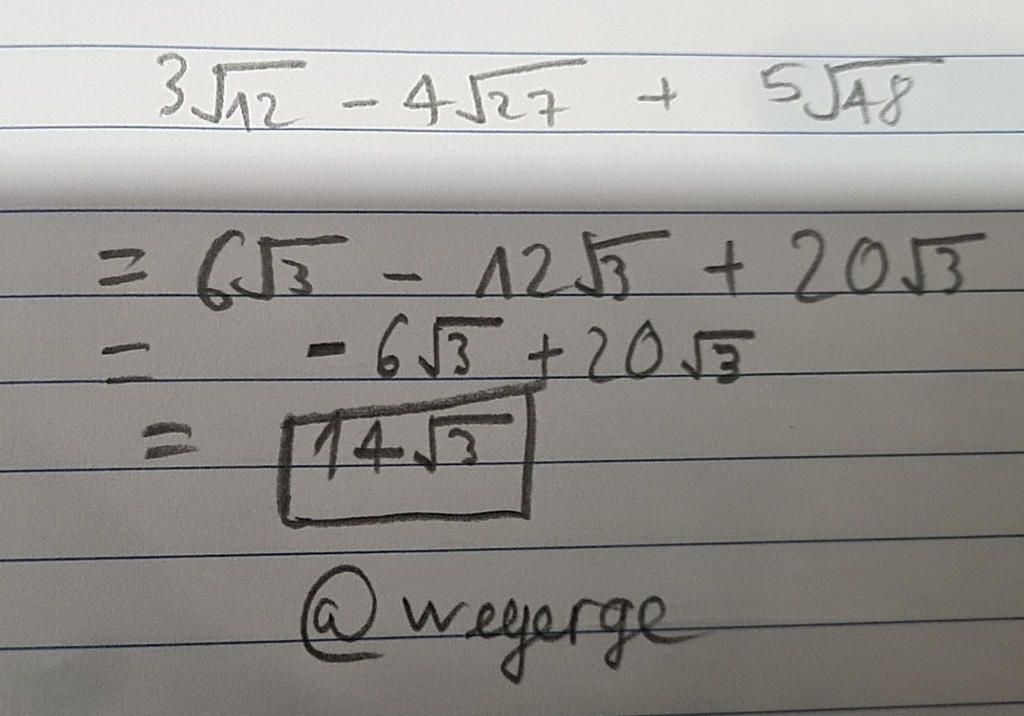 3√12 - 4√27 + 5√48
= 6√3 - 12√3 + 20√3
= - 6√3 + 20√3
= 14√3
@wegerge